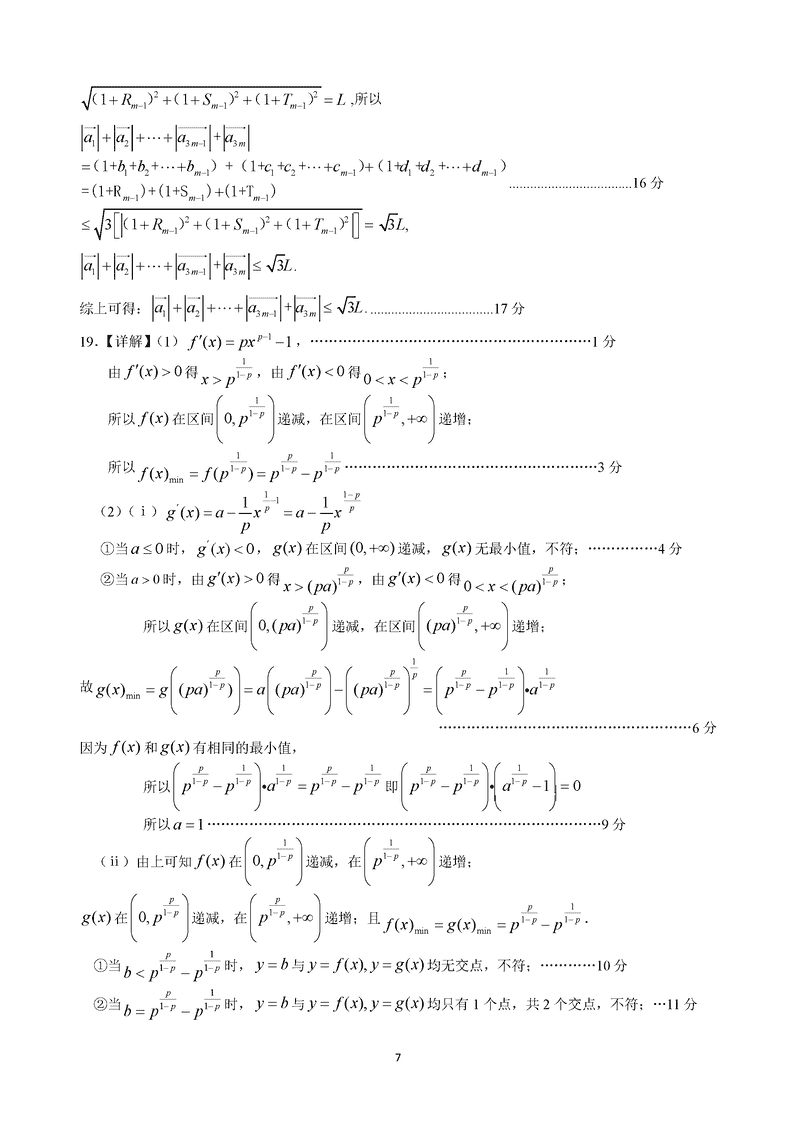 √((1+R_{m-1})²+(1+S_{m-1})²+(1+T_{m-1})²) = L ,所以
|a₁|+|a₂|+⋯+|a_{3m-1}|+|a_{3m}|
=(1+b₁+b₂+⋯+b_{m-1})+(1+c₁+c₂+⋯+c_{m-1})+(1+d₁+d₂+⋯+d_{m-1})
=(1+R_{m-1})+(1+S_{m-1})+(1+T_{m-1}) ...................................16 分
≤ √(3[(1+R_{m-1})²+(1+S_{m-1})²+(1+T_{m-1})²]) = √3L,
|a₁|+|a₂|+⋯+|a_{3m-1}|+|a_{3m}| ≤ √3L.
综上可得: |a₁|+|a₂|+⋯+|a_{3m-1}|+|a_{3m}| ≤ √3L. ...................................17 分
19.【详解】(1) f′(x) = px^{p-1} −1 , ……………………………………………………1 分
由 f′(x) > 0 得 x > p^{1/(1-p)} ,由 f′(x) < 0 得 0 < x < p^{1/(1-p)} ;
所以 f(x) 在区间 (0, p^{1/(1-p)}) 递减,在区间 (p^{1/(1-p)}, +∞) 递增;
所以 f(x)_{min} = f(p^{1/(1-p)}) = p^{p/(1-p)} − p^{1/(1-p)} ………………………………………………3 分
(2)(ⅰ) g′(x) = a − (1/p)x^{1/p −1} = a − (1/p)x^{(1-p)/p}
①当 a ≤ 0 时, g′(x) < 0 , g(x) 在区间 (0,+∞) 递减, g(x) 无最小值,不符;……………4 分
②当 a > 0 时,由 g′(x) > 0 得 x > (pa)^{p/(1-p)} ,由 g′(x) < 0 得 0 < x < (pa)^{p/(1-p)} ;
所以 g(x) 在区间 (0, (pa)^{p/(1-p)}) 递减,在区间 ((pa)^{p/(1-p)}, +∞) 递增;
故 g(x)_{min} = g((pa)^{p/(1-p)}) = a((pa)^{p/(1-p)}) − ((pa)^{p/(1-p)})^{1/p} = (p^{p/(1-p)} − p^{1/(1-p)})•a^{1/(1-p)}
………………………………………………6 分
因为 f(x) 和 g(x) 有相同的最小值,
所以 (p^{p/(1-p)} − p^{1/(1-p)})•a^{1/(1-p)} = p^{p/(1-p)} − p^{1/(1-p)} 即 (p^{p/(1-p)} − p^{1/(1-p)})•(a^{1/(1-p)} −1) = 0
所以 a = 1 …………………………………………………………………………9 分
(ⅱ)由上可知 f(x) 在 (0, p^{1/(1-p)}) 递减,在 (p^{1/(1-p)}, +∞) 递增;
g(x) 在 (0, p^{p/(1-p)}) 递减,在 (p^{p/(1-p)}, +∞) 递增;且 f(x)_{min} = g(x)_{min} = p^{p/(1-p)} − p^{1/(1-p)} .
①当 b < p^{p/(1-p)} − p^{1/(1-p)} 时, y = b 与 y = f(x), y = g(x) 均无交点,不符;…………10 分
②当 b = p^{p/(1-p)} − p^{1/(1-p)} 时, y = b 与 y = f(x), y = g(x) 均只有 1 个点,共 2 个交点,不符;…11 分
7